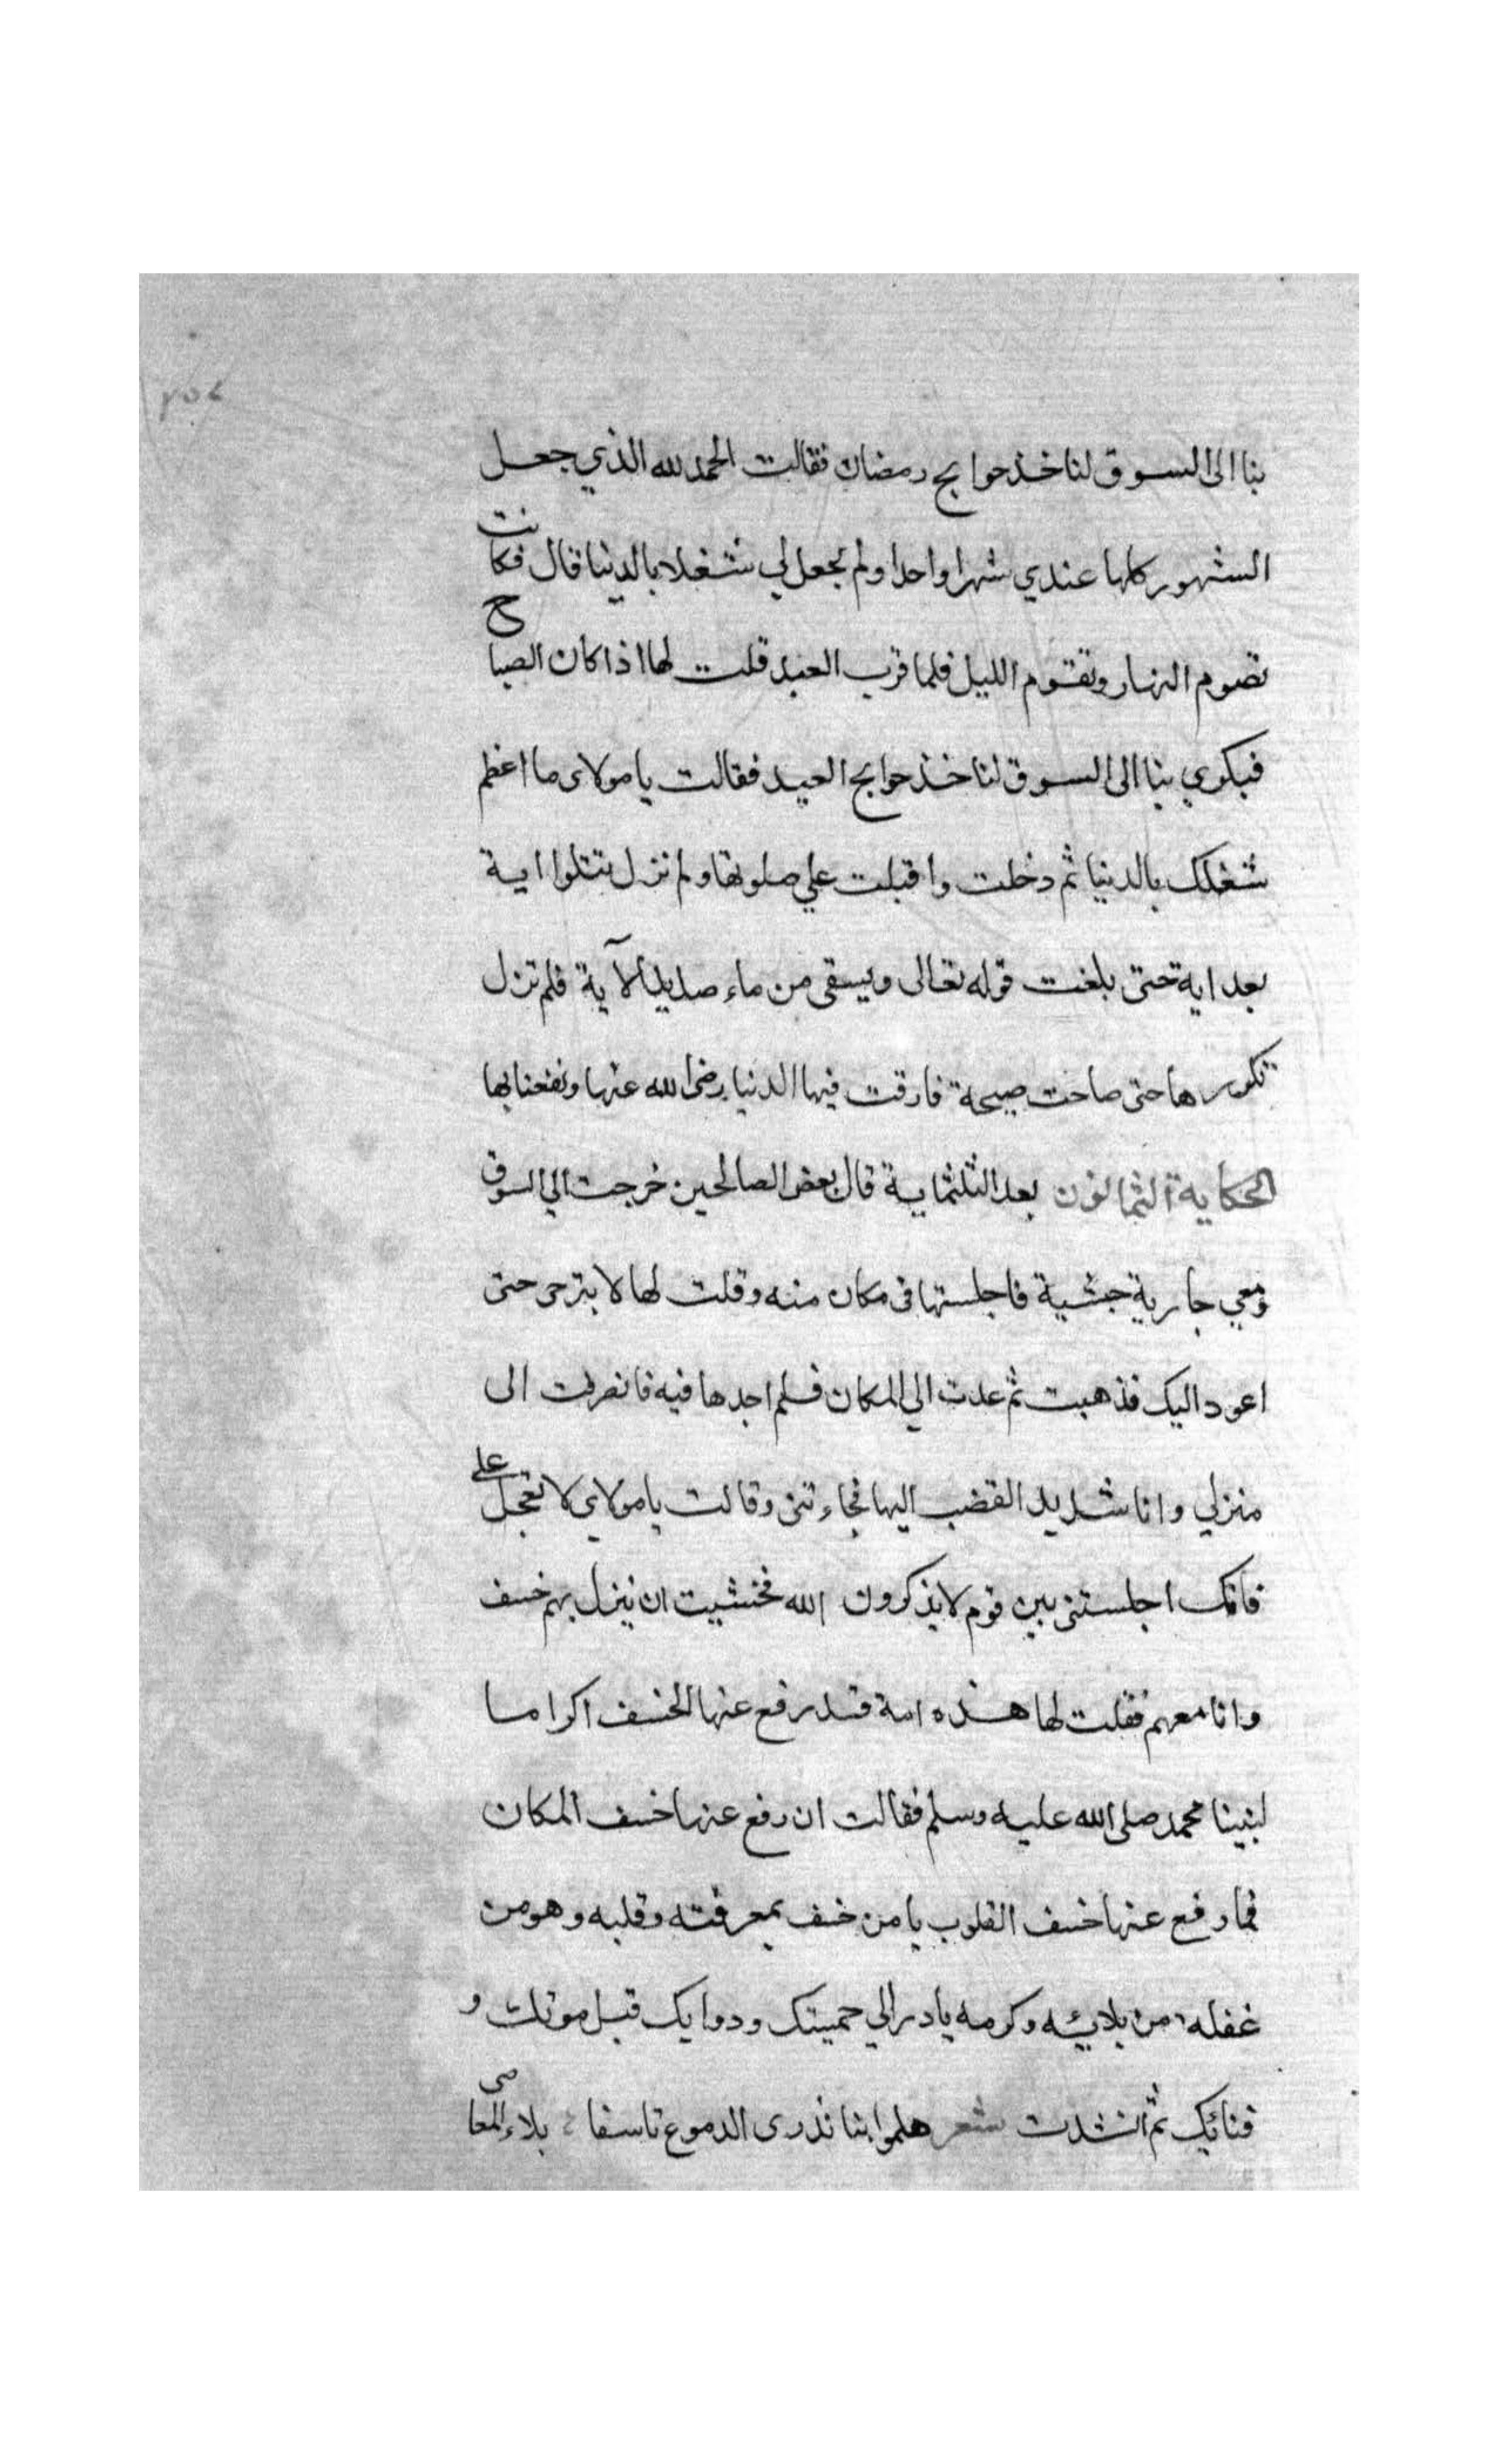 بنا الى السوق لناخذ حوايج رمضان فقالت الحمد لله الذي جعل
الشهور كلها عندي شهرا واحدا ولم يجعل لي شغلا بالدنيا قال فكانت
تصوم النهار وتقوم الليل فلما قرب العيد قلت لها اذا كان الصباح
فبكري بنا الى السوق لناخذ حوايج العيد فقالت يا مولاى ما اعظم
شغلك بالدنيا ثم دخلت واقبلت علي صلوتها ولم تزل تتلوا اية
بعد اية حتى بلغت قوله تعالى ويسقى من ماء صديد الآية فلم تزل
تكررها حتى صاحت صيحة فارقت فيها الدنيا رضى الله عنها ونفعنا بها
الحكاية الثمانون بعد الثلثماية قال بعض الصالحين خرجت الي السوق
ومعي جارية حبشية فاجلستها فى مكان منه وقلت لها لا تبرحى حتى
اعود اليك فذهبت ثم عدت الي المكان فلم اجدها فيه فانصرفت الى
منزلي وانا شديد الغضب اليها فجاءتنى وقالت يا مولاي لا تعجل على
فانك اجلستنى بين قوم لا يذكرون الله فخشيت ان ينزل بهم خسف
وانا معهم فقلت لها هذه امة قد رفع عنها الخسف اكراما
لنبينا محمد صلى الله عليه وسلم فقالت ان رفع عنها خسف المكان
فما رفع عنها خسف القلوب يا من خسف بمعرفته وقلبه وهو من
غفله من بلائيه وكرمه بادر الي حميتك ودوايك قبل موتك و
فنائك ثم انشدت شعر هلموا بنا نذرى الدموع تاسفا بلاء المعاصى